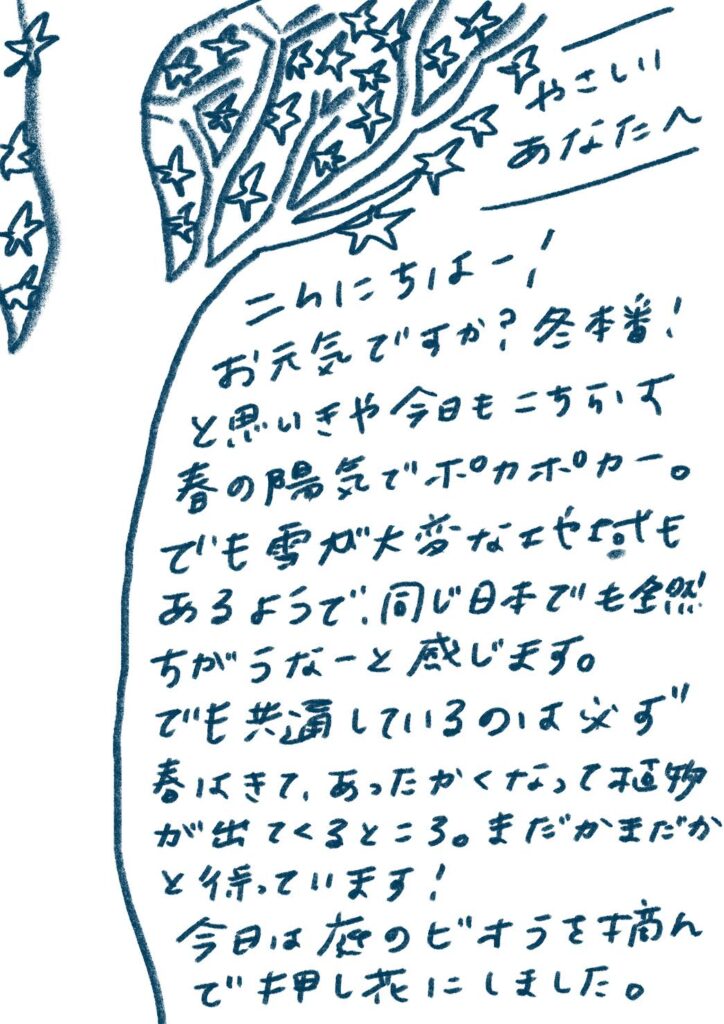 やさしい
あなたへ
こんにちはー！
お元気ですか？冬本番！
と思いきや今日もこちらは
春の陽気でポカポカー。
でも雪が大変な地域も
あるようで、同じ日本でも全然
ちがうなーと感じます。
でも共通しているのは必ず
春はきて、あったかくなって植物
が出てくるところ。まだかまだか
と待っています！
今日は庭のビオラを摘ん
で押し花にしました。